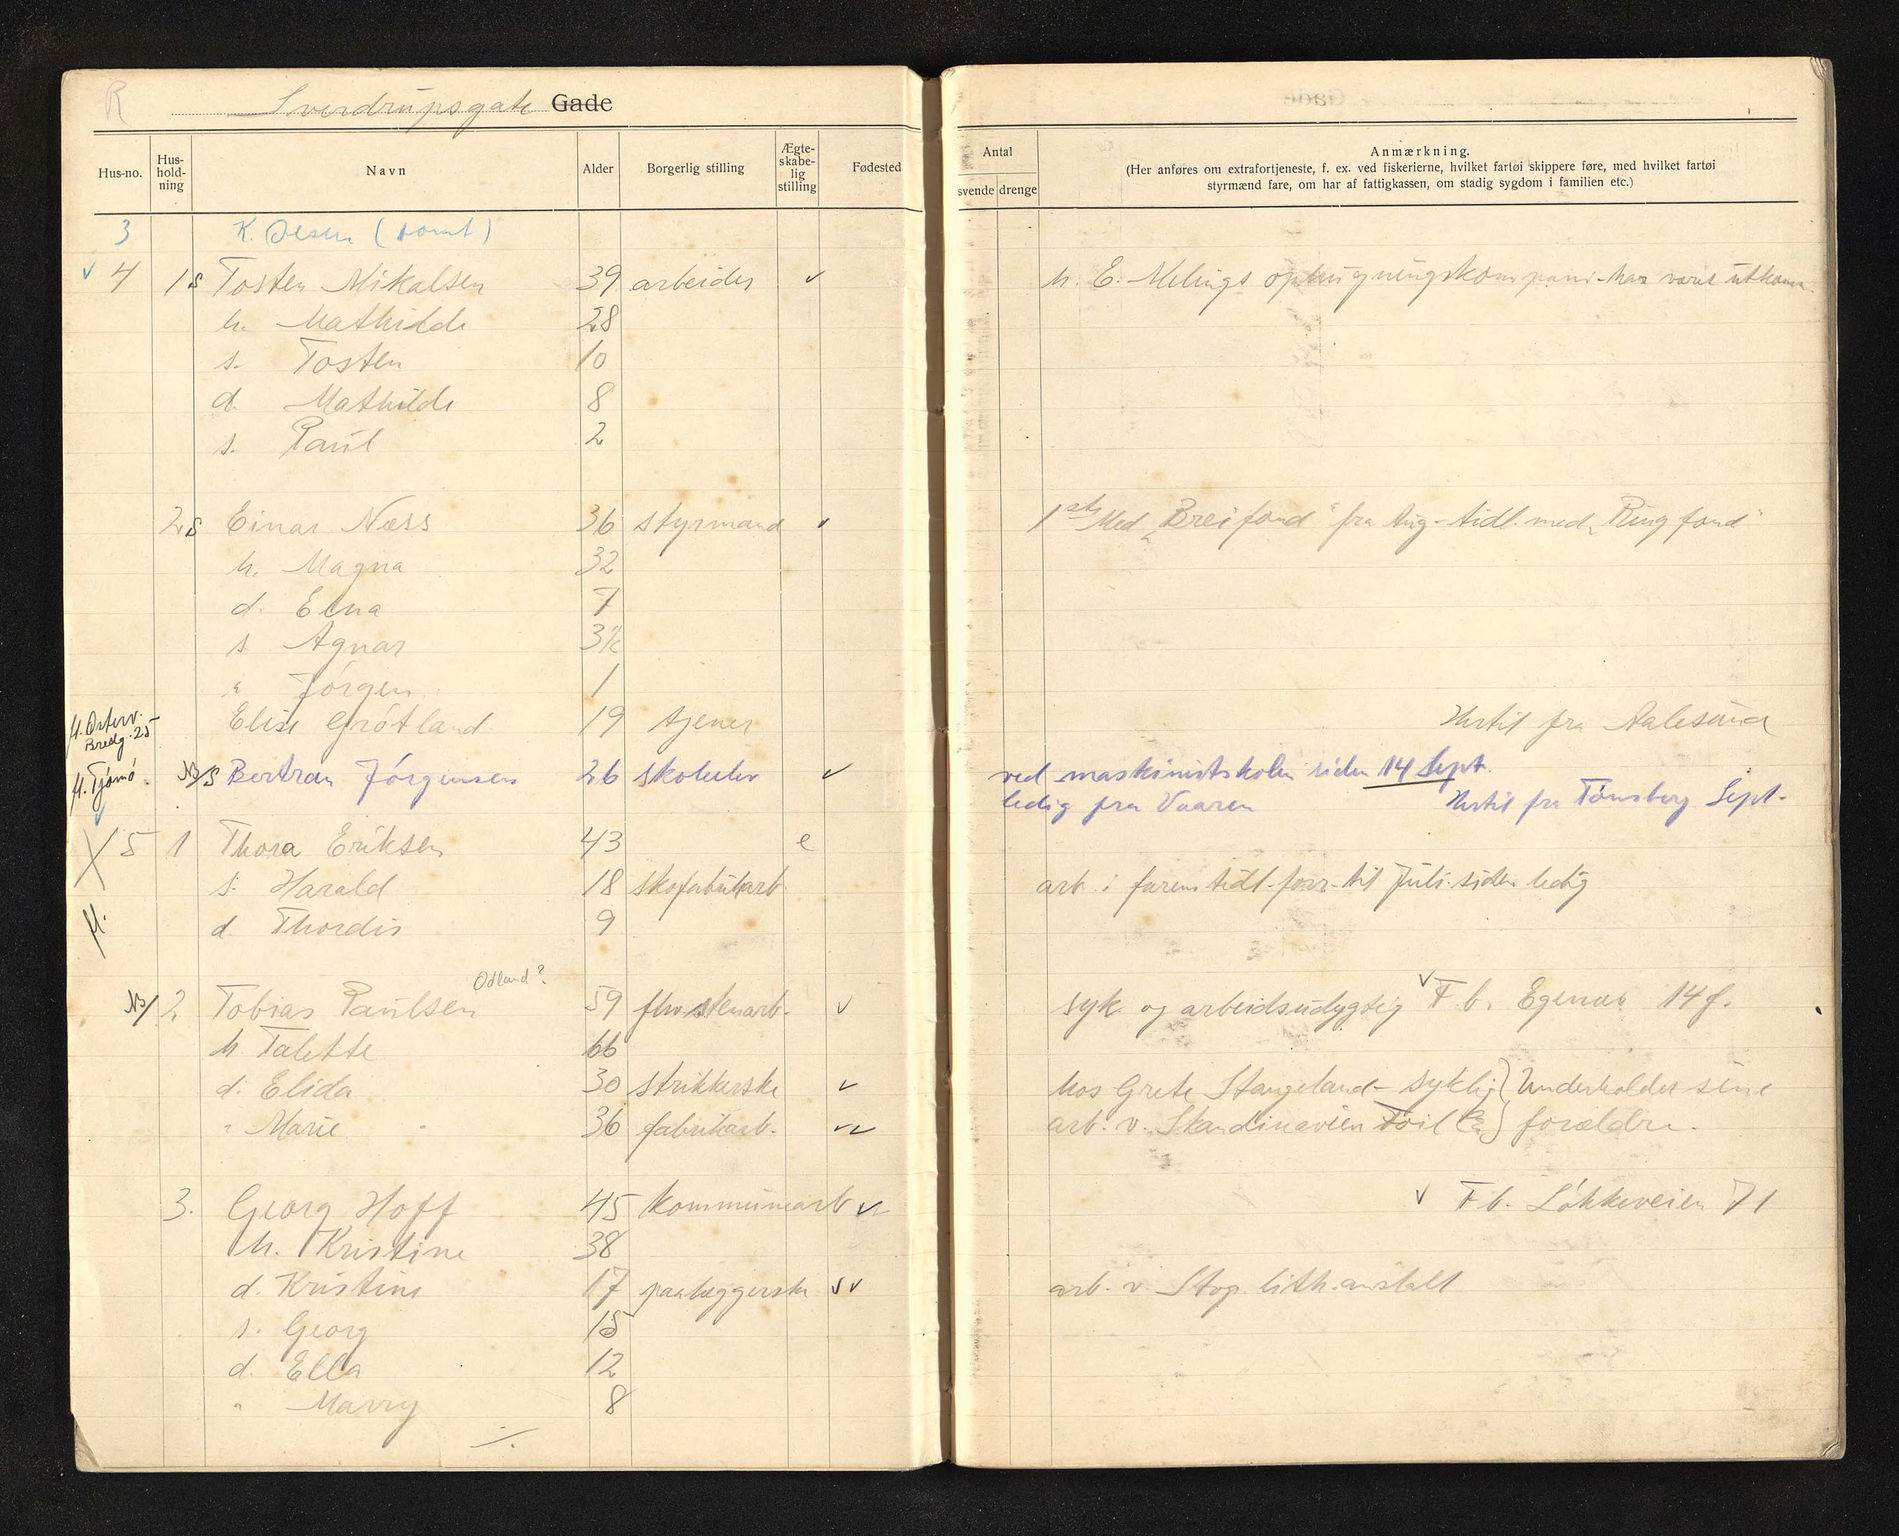 R
Sverdrupsgate Gade
Hus-no. Hus-hold-ning Navn Alder Borgerlig stilling Ægte-skabe-lig stilling Fødested
Antal
svende drenge
Anmærkning.
(Her anføres om extrafortjeneste, f. ex. ved fiskerierne, hvilket fartøi skippere føre, med hvilket fartøi
styrmænd fare, om har af fattigkassen, om stadig sygdom i familien etc.)
3 K. Olsen (tomt)
4 1 s Tosten Mikalsen 39 arbeider h. E. Melings ophugningskompani - har været
h. Mathilde 28
s. Tosten 10
d. Mathilde 8
s. Paul 2
2 s Einar Næss 36 styrmand 1ste Med "Breifond" fra Aug - tidl. med "Ringfond"
h. Magna 32
d. Elna 7
s. Agnar 3½
" Jørgen 1
fl. Østerv. Bredg. 25 Elise Grötland 19 tjener Hertil fra Aalesund
fl. Tjømö. s Bertran Jörgensen 26 skoleelev ved maskinistskolen siden 14 Sept.
ledig fra Vaaren Hertil fra Tönsberg Sept.
5 1 Thora Eriksen 43 e
s. Harald 18 skofabrikarb arb. i tidl. til Juli siden ledig
fl. d. Thordis 9
Odland?
2 Tobias Paulsen 59 fhv. stenarb. syk og arbeidsudygtig F. b. Egenæs 14 f.
h. Talette 66
d. Elida 30 strikkerske hos Grete Stangeland - syklig } Underholder sine
" Marie 36 fabrikarb. arb. v. Skandinavien Töil Co } forældre.
3. Georg Hoff 45 kommunearb F b. Lökkeveien 71
h. Kristine 38
d. Kristine 17 paalæggerske arb. v. Stvgr. lith. anstalt
s. Georg 15
d. Ella 12
" Marry 8